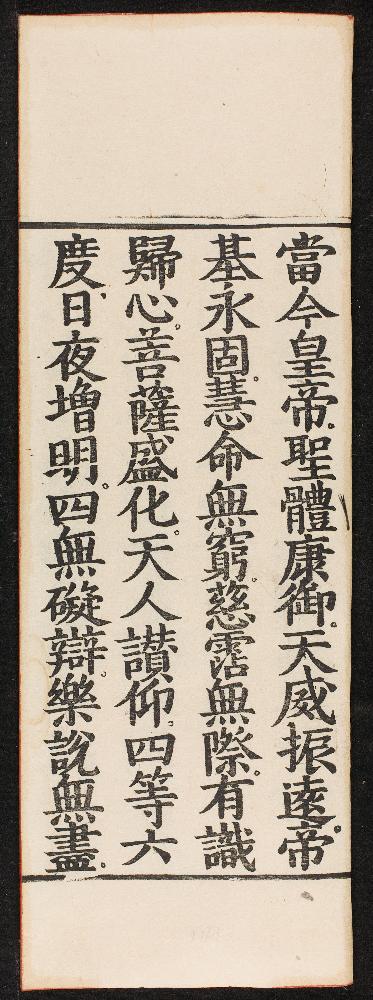 當今皇帝。聖體康御。天威振遠。帝
基永固。慧命無窮。慈霑無際。有識
歸心。菩薩盛化。天人讃仰。四等六
度。日夜增明。四無礙辯。樂說無盡。